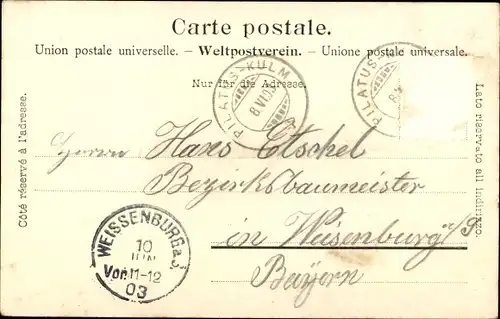 Carte postale.
Union postale universelle. – Weltpostverein. – Unione postale universale.
Nur für die Adresse.
Côté réservé à l'adresse.
Lato riservato all indirizzo.
PILATUS-KULM
8 VI 03
PILATUS-
8
Herrn Hans Etschel
Bezirksbaumeister
in Weisenburg a/S
Bayern
WEISSENBURG a.S.
10
JUN
Vor. 11-12
03